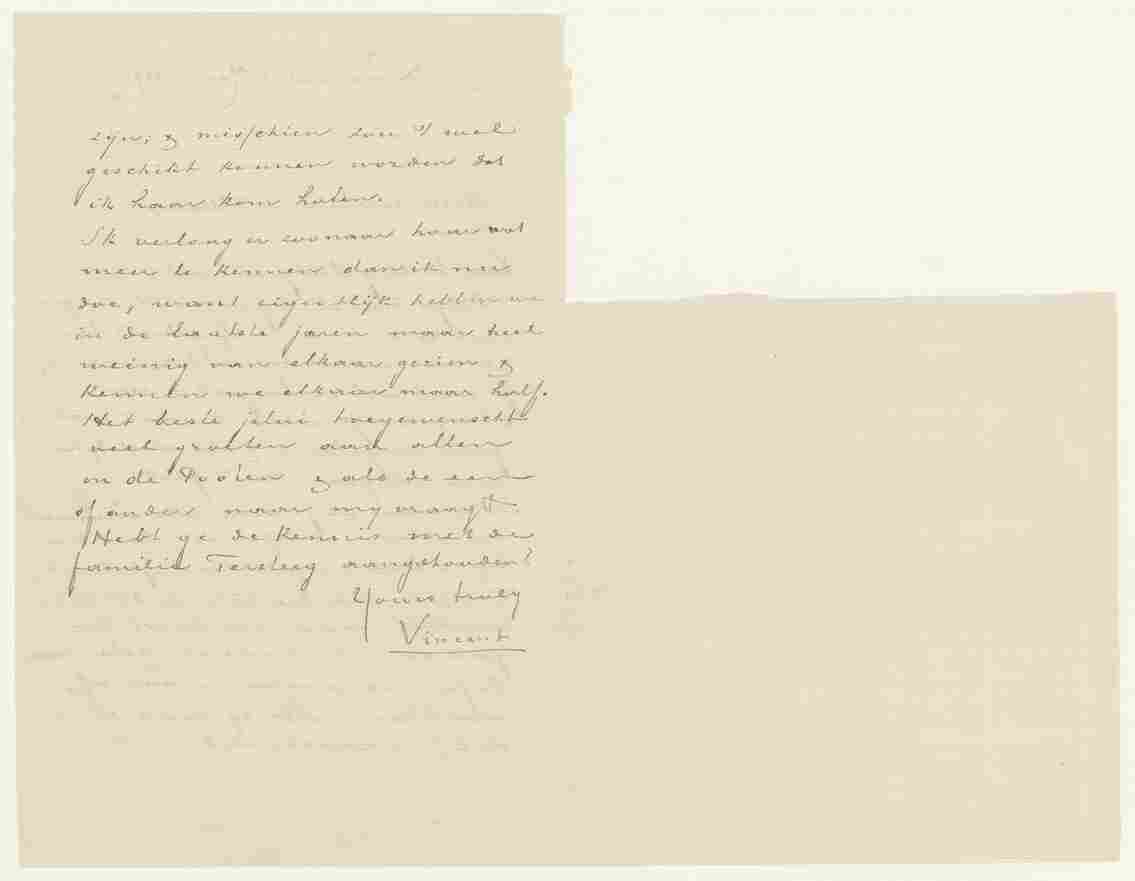 zijn, & misschien zou 't wel
geschikt kunnen worden dat
ik haar kom halen.
Ik verlang er zoo naar haar wat
meer te kennen dan ik nu
doe, want eigentlijk hebben we
in de laatste jaren maar heel
weinig van elkaar gezien &
kennen we elkaar maar half.
Het beste jelui toegewenscht
veel groeten aan allen
in de Pooten & als de een
of ander naar mij vraagt.
Hebt ge de kennis met de
familie Tersteeg aangehouden?
Yours truly
Vincent